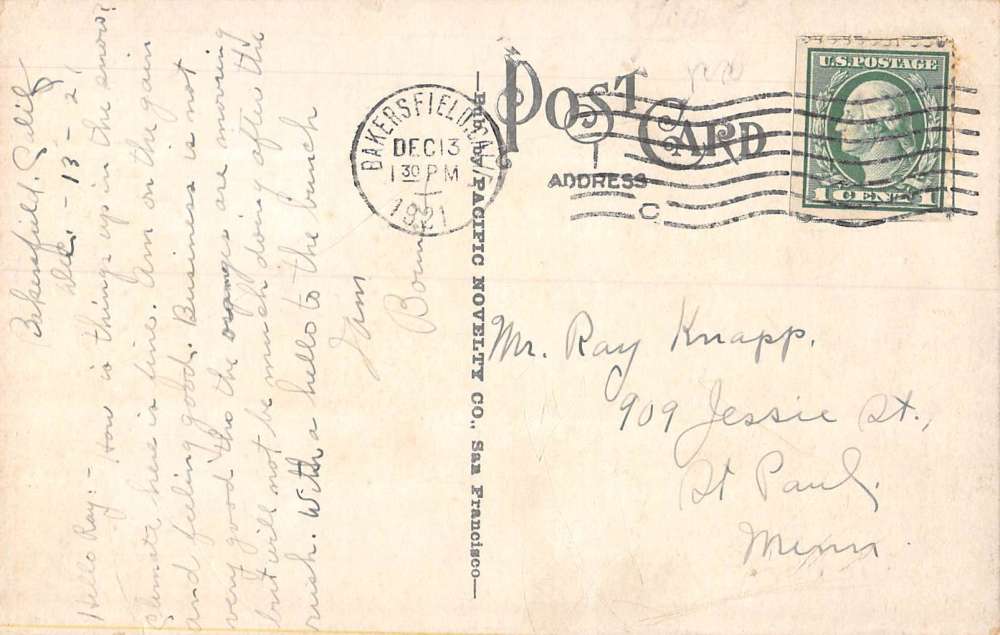 Bakersfield, Calif
Dec. - 13 - 21
Hello Ray: - How is things up in the snow?
Climate here is fine. Am on the gain
and feeling good. Business is not
very good tho the oranges are moving
but will not be much doing after the
rush. With a hello to the bunch
I am
POST CARD
ADDRESS
BAKERSFIELD, CAL.
DEC 13
1 30 PM
1921
C
U.S. POSTAGE
1 CENT 1
—Pub. by PACIFIC NOVELTY CO., San Francisco—
Mr. Ray Knapp.
909 Jessie St.,
St Paul,
Minn.